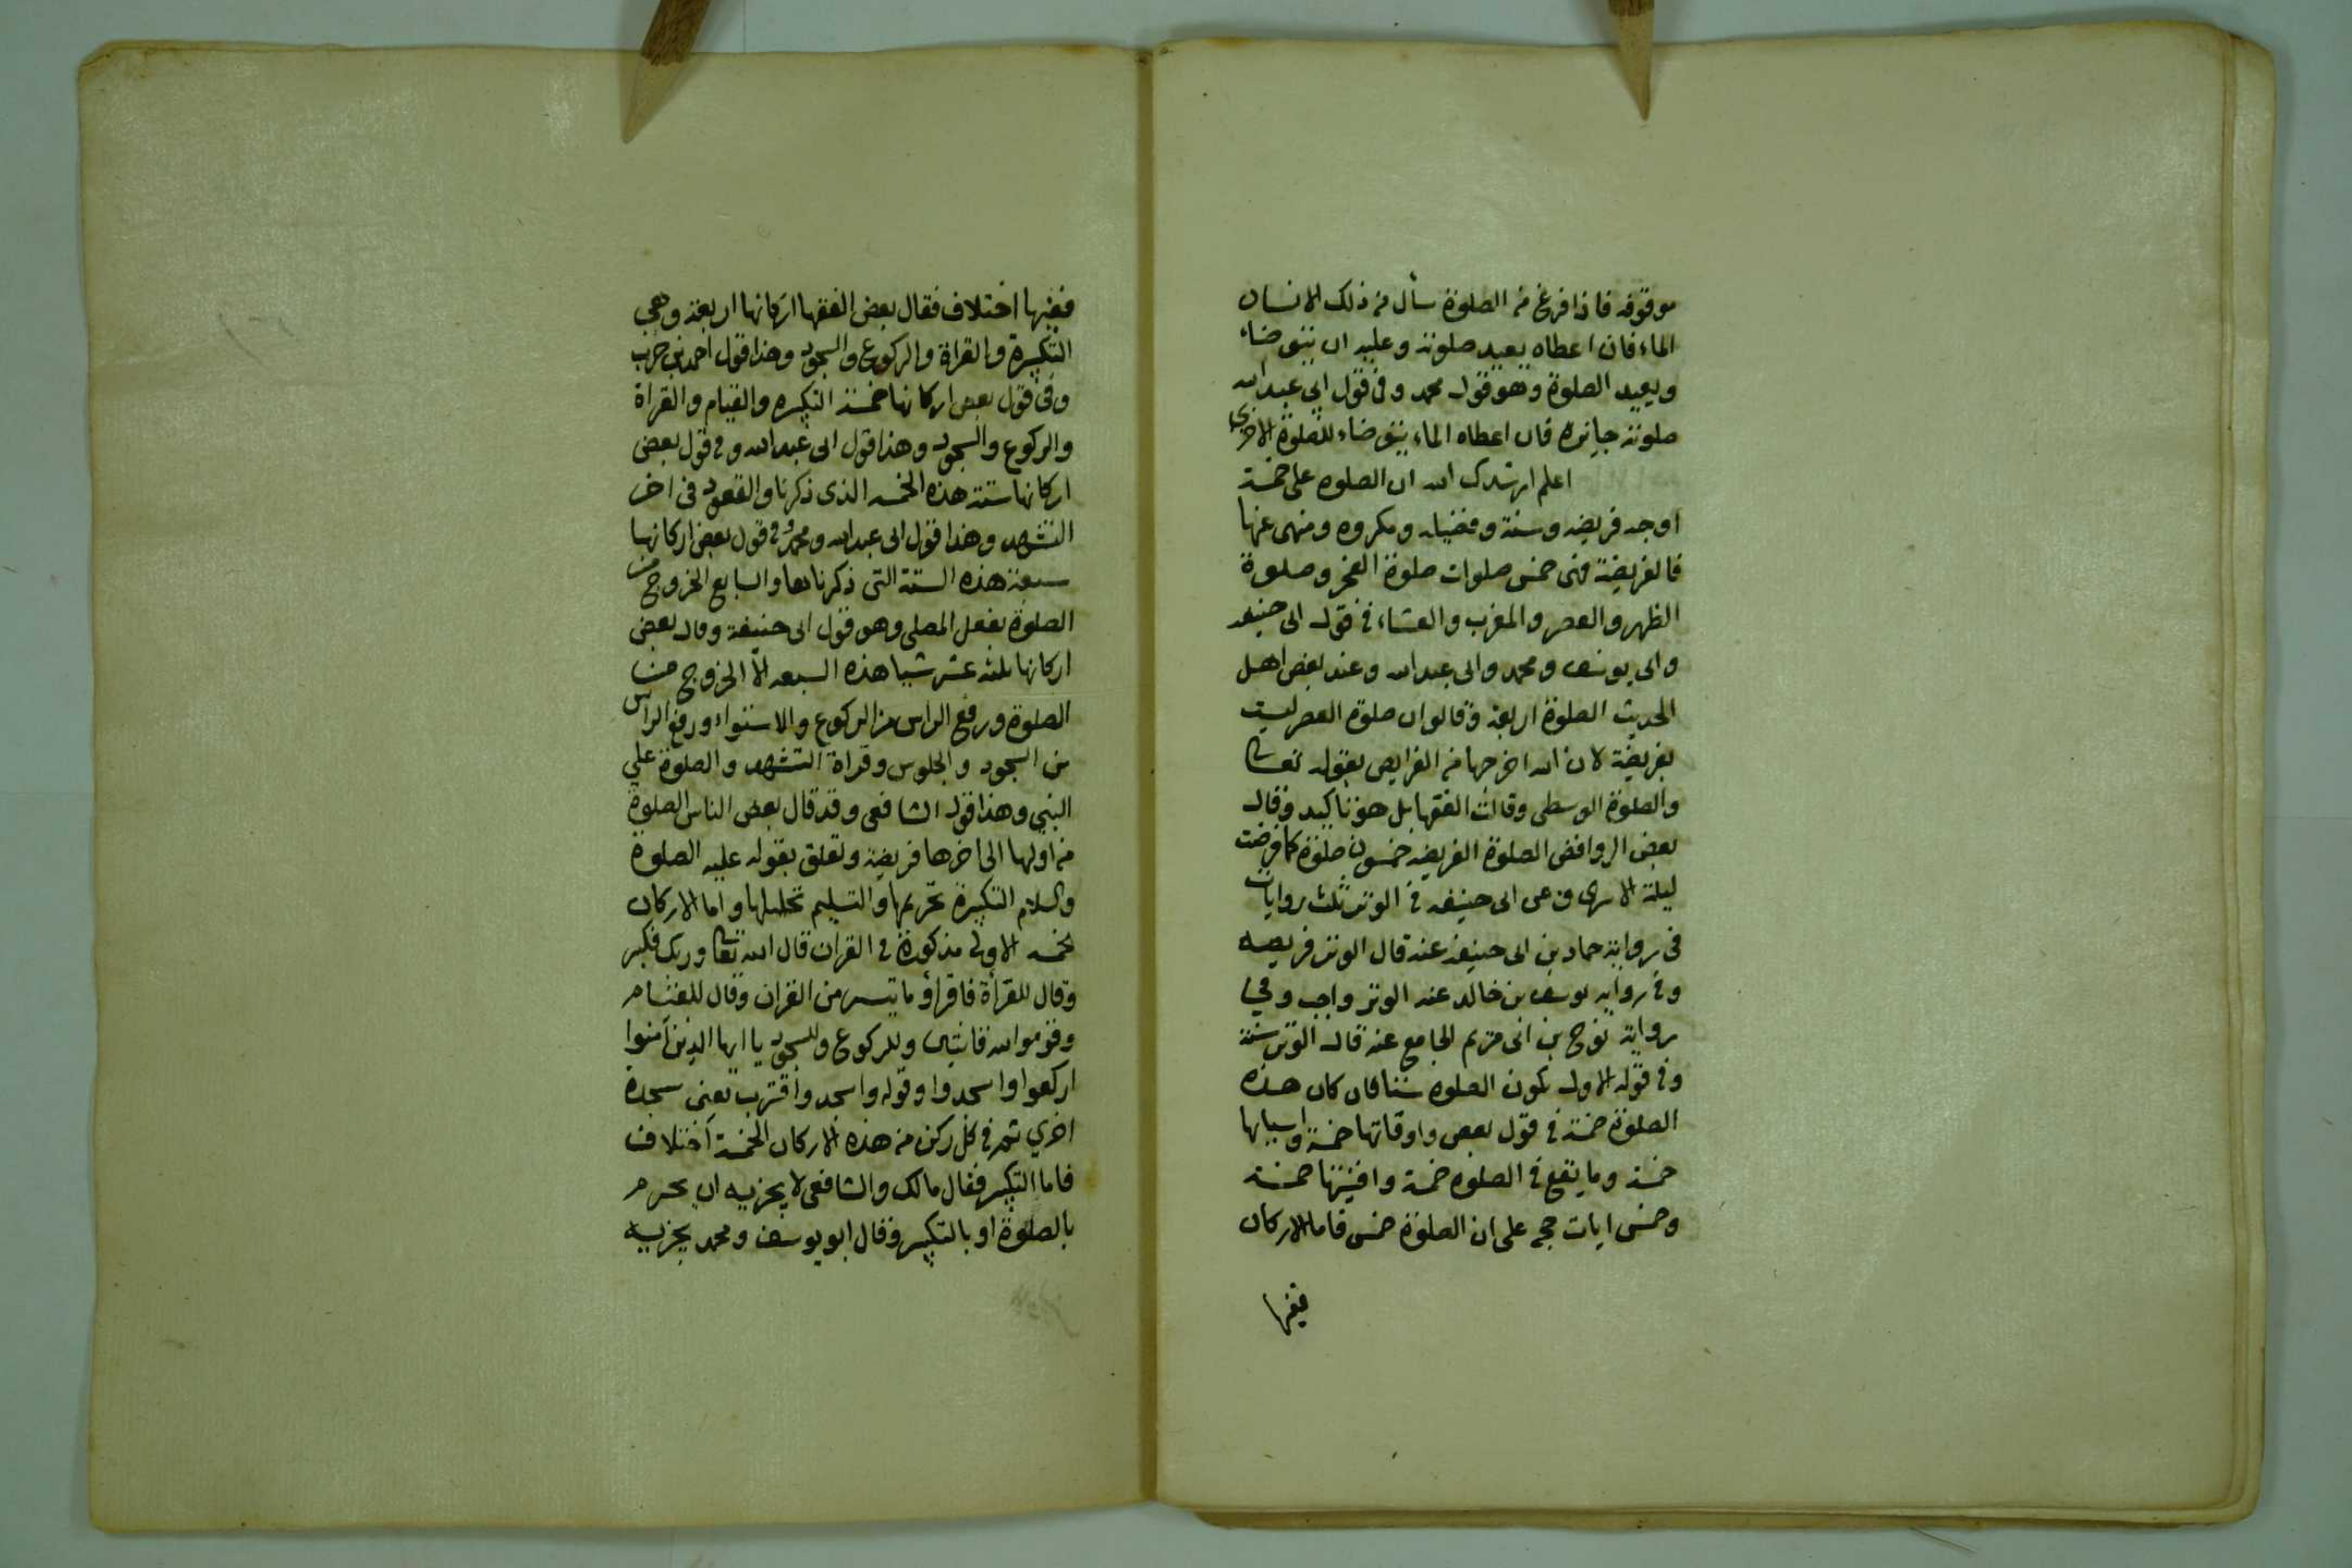 موقوفه فاذا فرغ من الصلوة سأل من ذلك الانسان
الماء فان اعطاه يعيد صلوته وعليه ان يتوضاء
ويعيد الصلوة وهو قول محمد وفى قول ابى عبد الله
صلوته جايزة فان اعطاه الماء يتوضاء للصلوة الاخرى
اعلم ارشدك الله ان الصلوه على خمسة
اوجه فريضه وسنة وفضيله ومكروه ومنهى عنها
فالفريضة فهى خمس صلوات صلوة الفجر وصلوة
الظهر والعصر والمغرب والعشاء فى قول ابى حنيفه
وابى يوسف ومحمد وابى عبد الله وعند بعض اهل
الحديث الصلوة اربعة وقالوا ان صلوة العصر ليست
بفريضة لان الله اخرجها من الفرايض بقوله تعالى
والصلوة الوسطى وقالت الفقها بل هو تاكيد وقال
بعض الروافض الصلوة الفريضه خمسون صلوة كما فرضت
ليلة الاسرى وعن ابى حنيفه فى الوتر ثلث روايات
فى رواية حماد بن ابى حنيفة عنه قال الوتر فريضه
وفى روايه يوسف بن خالد عنه الوتر واجب وفى
رواية نوح بن ابى مريم الجامع عنه قال الوتر سنة
وفى قوله الاول تكون الصلوه ستا فان كان هذه
الصلوة خمسة فى قول بعض واوقاتها خمسة واسبابها
خمسة وما يقع فى الصلوه خمسة وافنيتها خمسة
وخمس ايات حجه على ان الصلوة خمس فاما الاركان
ففيها
ففيها اختلاف فقال بعض الفقها اركانها اربعة وهى
التكبيرة والقراة والركوع والسجود وهذا قول احمد بن حرب
وفى قول بعض اركانها خمسة التكبيره والقيام والقراة
والركوع والسجود وهذا قول ابى عبد الله وفى قول بعض
اركانها ستة هذه الخمسه الذى ذكرنا والقعود فى اخر
التشهد وهذا قول ابى عبد الله ومحمد وفى قول بعض اركانها
سبعة هذه الستة التى ذكرناها والسابع الخروج من
الصلوة بفعل المصلى وهو قول ابى حنيفة وقال بعض
اركانها ثلثه عشر شيا هذه السبعه الا الخروج من
الصلوة ورفع الراس من الركوع والاستواء ورفع الراس
من السجود والجلوس وقراة التشهد والصلوة على
النبى وهذا قول الشافعى وقد قال بعض الناس الصلوة
من اولها الى اخرها فريضة وتعلق بقوله عليه الصلوة
والسلام التكبيرة تحريمها والتسليم تحليلها واما الاركان
بخمسه الاولى مذكورة فى القران قال الله تعالى وربك فكبر
وقال للقرأة فاقرأو ما تيسر من القران وقال للقيام
وقوموا لله قانتين وللركوع والسجود يا ايها الذين آمنوا
اركعوا واسجدوا وقوله واسجد واقترب يعنى سجدة
اخرى ثم فى كل ركن من هذه الاركان الخمسة اختلاف
فاما التكبير فقال مالك والشافعى لا يجزيه ان يحرم
بالصلوة او بالتكبير وقال ابو يوسف ومحمد يجزيه